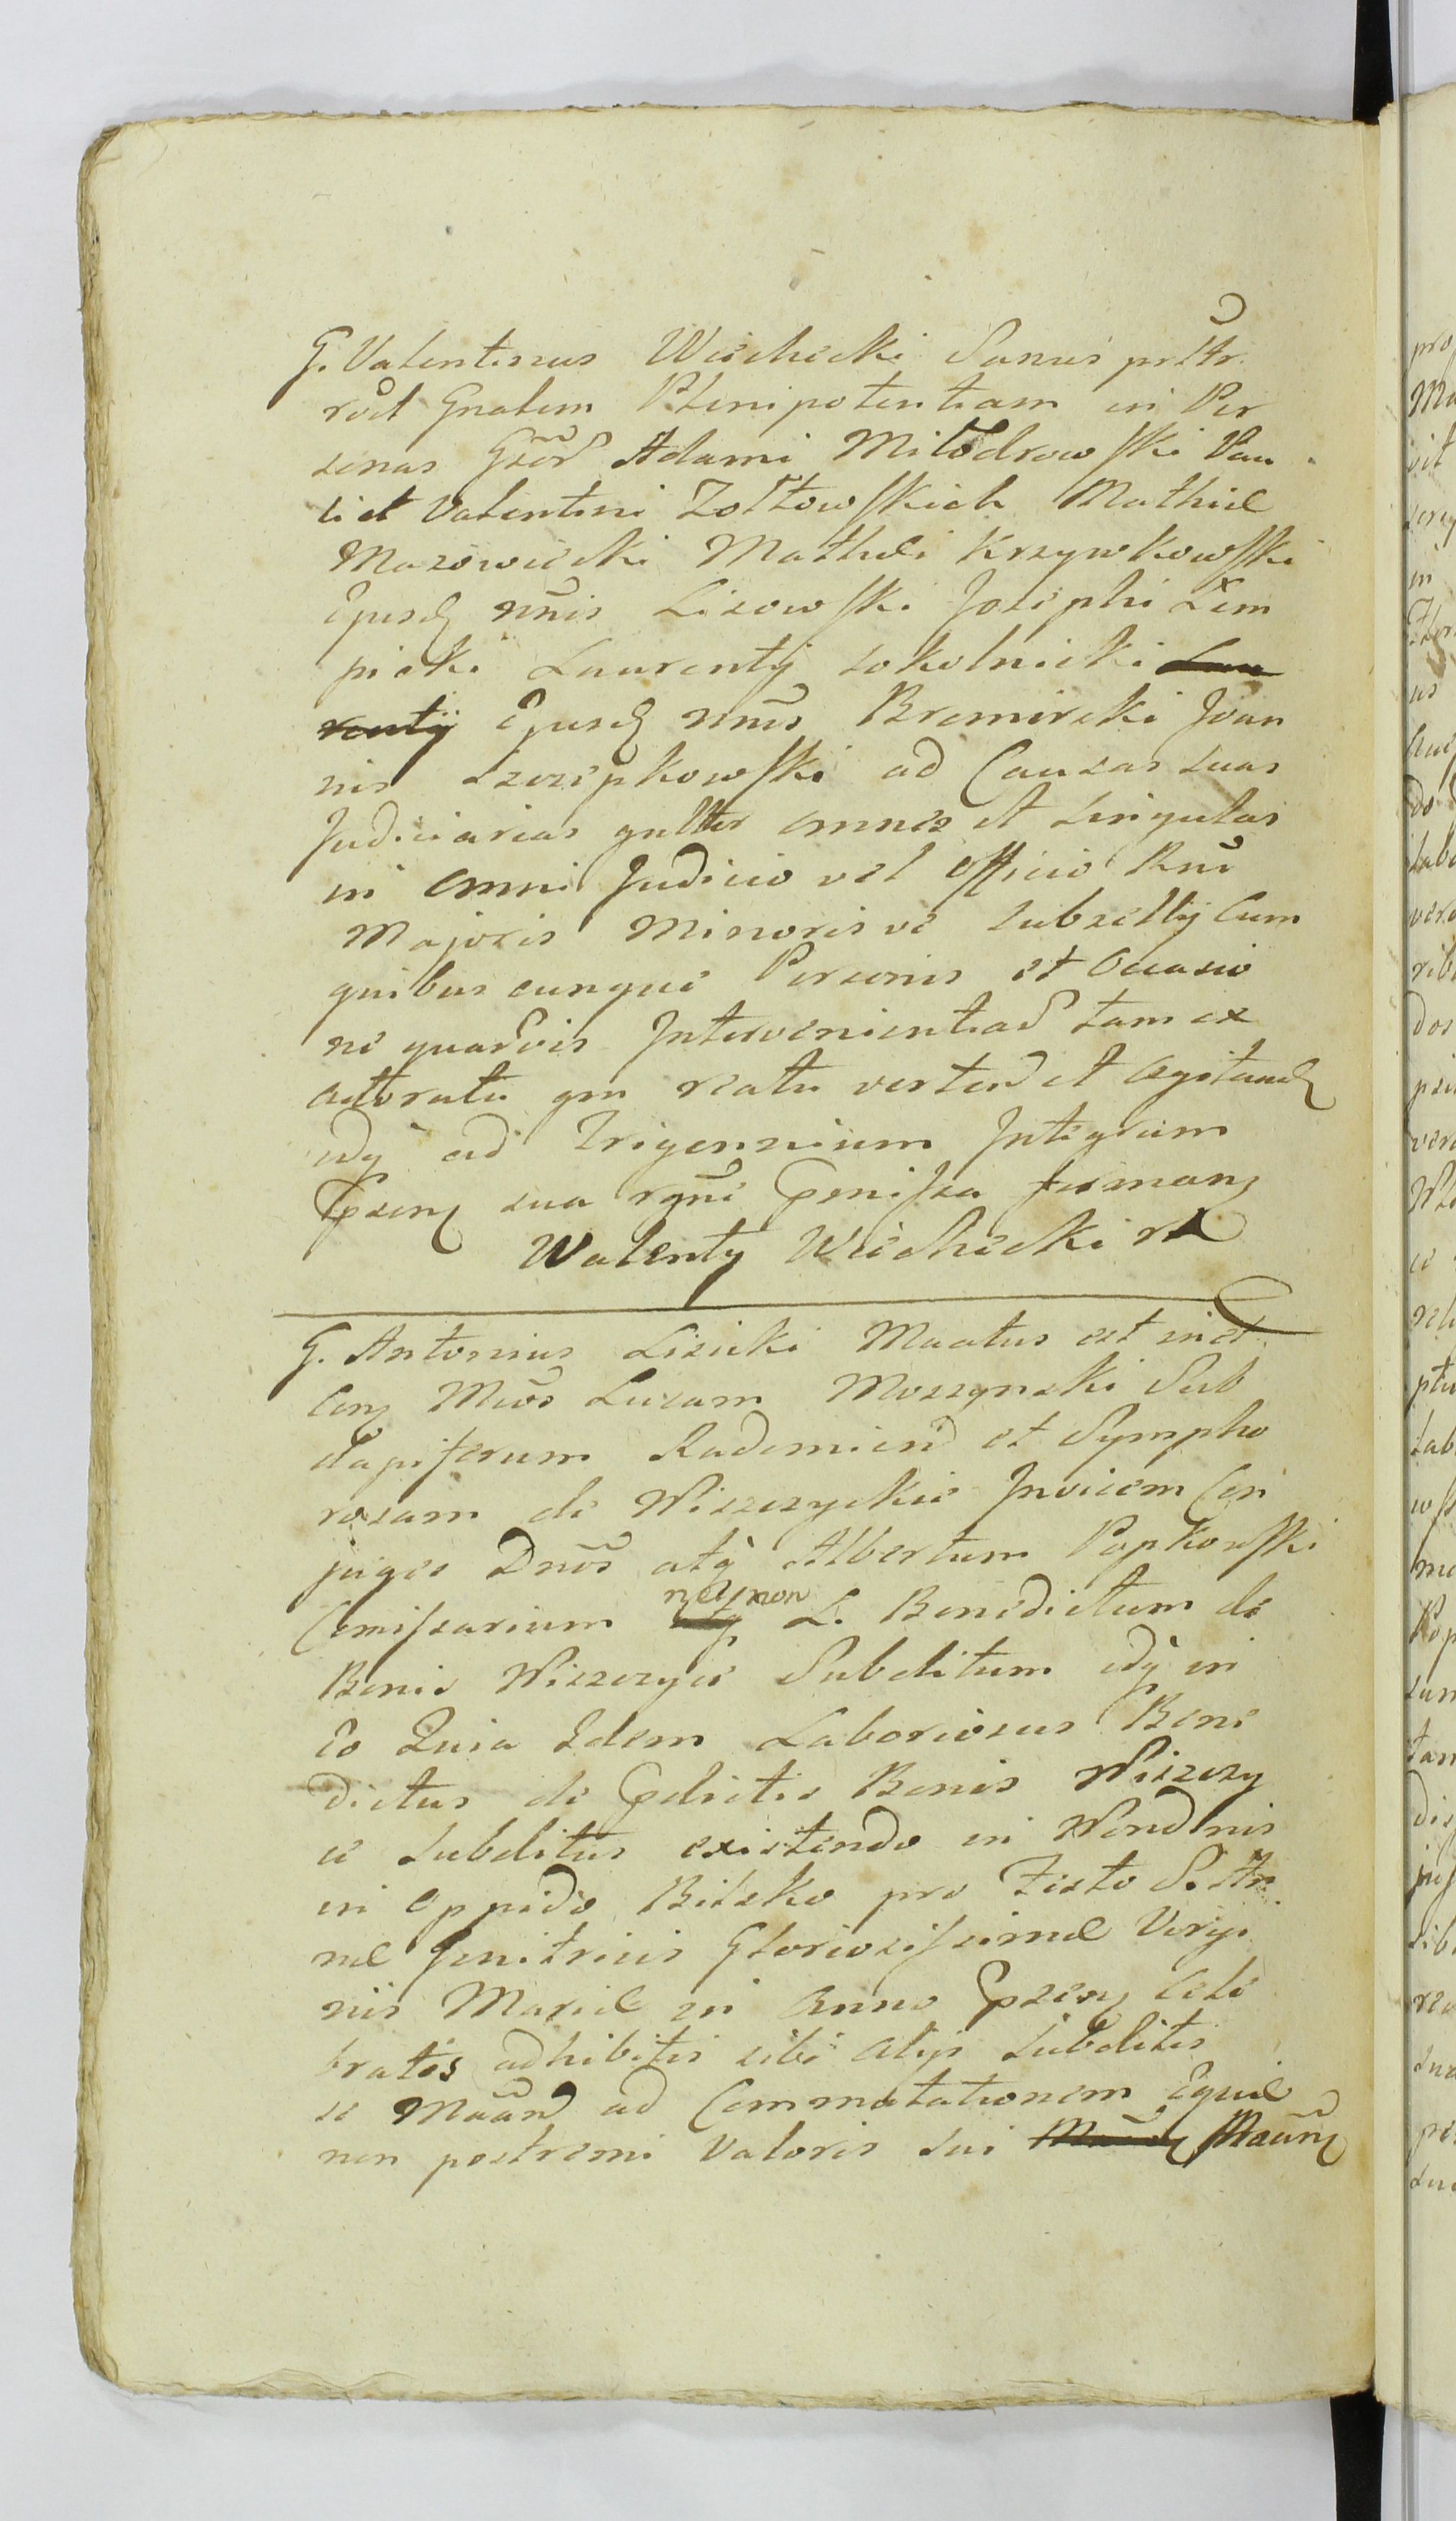 G. Valentinus Wiechecki Sanus prttr.
rvit Gnalem Plenipotentiam in Per
sonas Gsor Adami Milodrowski Pau
li et Valentini Zołtowskich Mathiæ
Mazowiecki Mathæi Krzywkowski
Ejusd nnis Lisowski Josephi Łem
picki Laurentij Sokolnicki Lau
rentij Ejusd nnis Bromirski Joan
nis Szczepkowski ad Causas suas
Judiciarias gnltter omnes et singulas
in omni Judicio vel officio Rni
Majoris Minorisve subsellij cum
quibuscunque Personis et occasio
ne quarvis Intervenientiad tam ex
actoratu qm reatu verten et agitand
idq ad Trigennium Integrum
Psen sua rgni Permissa forman
Walenty Wiechecki
G. Antonius Lisicki Maatus est in et
con Mcos Lucam Moszynski Sub
dapiferum Radomien et Sympho
rosam de Wiszczyckie Invicem con
juges Dnos atq Albertum Popkowski
Comissarium nec non L. Benedictum de
Bonis Wiszczyce Subditum idq in
Eo Quia Idem Laboriosus Bene
dictus de Pdictis Bonis Wiszczy
ce Subditus existendo in Nundinis
in oppido Bilsko pro Festo S. An
næ Genitricis Gloriosissimæ Virgi
nis Mariæ in Anno Psen cele
bratis adhibitis sibi alijs subditis
se Maan ad Commutationem Equæ
non postremi Valoris sui Maan